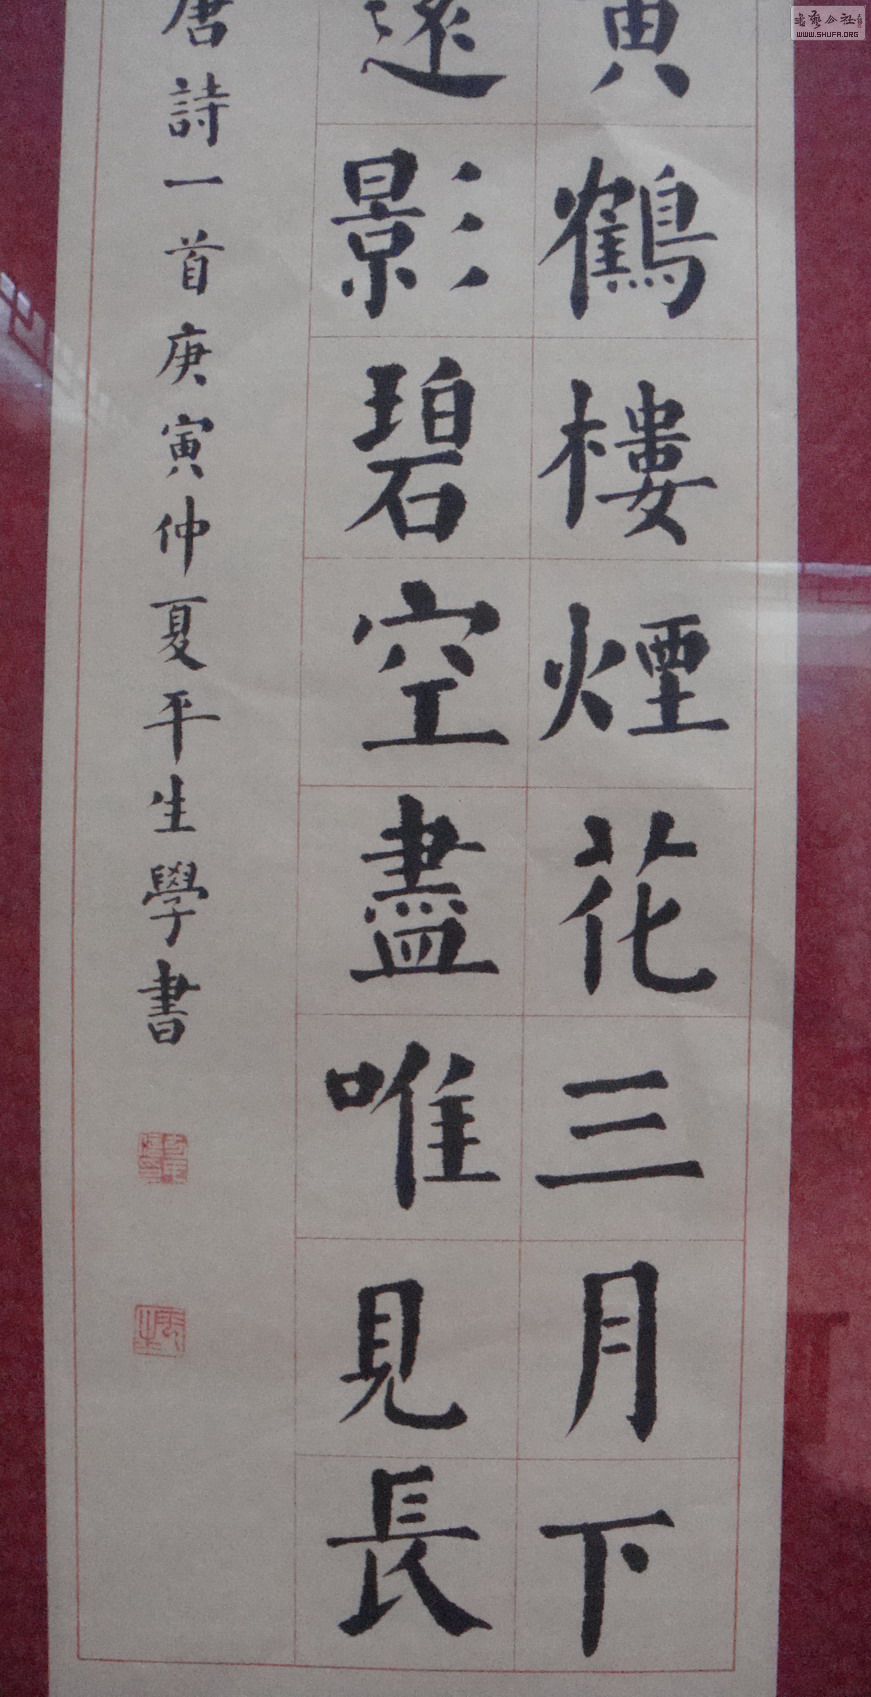 黄鶴樓煙花三月下
遠影碧空盡唯見長
唐詩一首庚寅仲夏平生學書
WWW.SHUFA.ORG